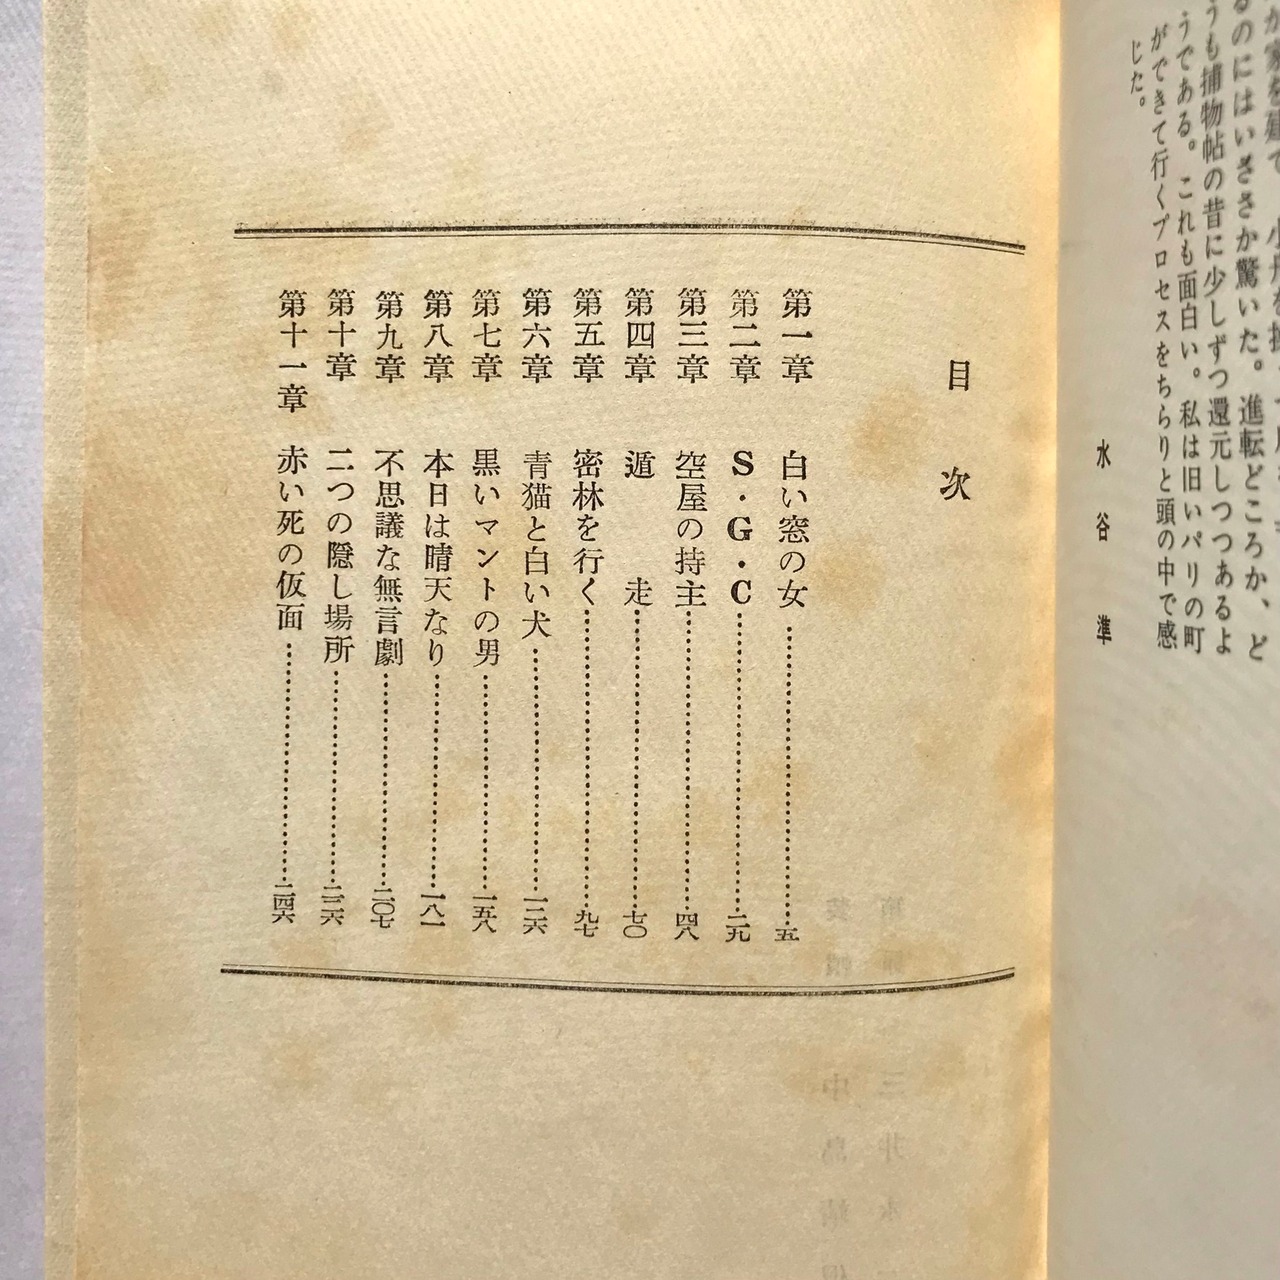 るのにはいささか驚いた。進転どころか、ど
うも捕物帖の昔に少しずつ還元しつつあるよ
うである。これも面白い。私は旧いパリの町
ができて行くプロセスをちらりと頭の中で感
じた。
水谷準
目次
第一章 白い窓の女…………五
第二章 S・G・C…………二九
第三章 空屋の持主…………四八
第四章 遁走…………七〇
第五章 密林を行く…………九七
第六章 青猫と白い犬…………一二六
第七章 黒いマントの男…………一五八
第八章 本日は晴天なり…………一八一
第九章 不思議な無言劇…………二〇七
第十章 二つの隠し場所…………二二六
第十一章 赤い死の仮面…………二四六